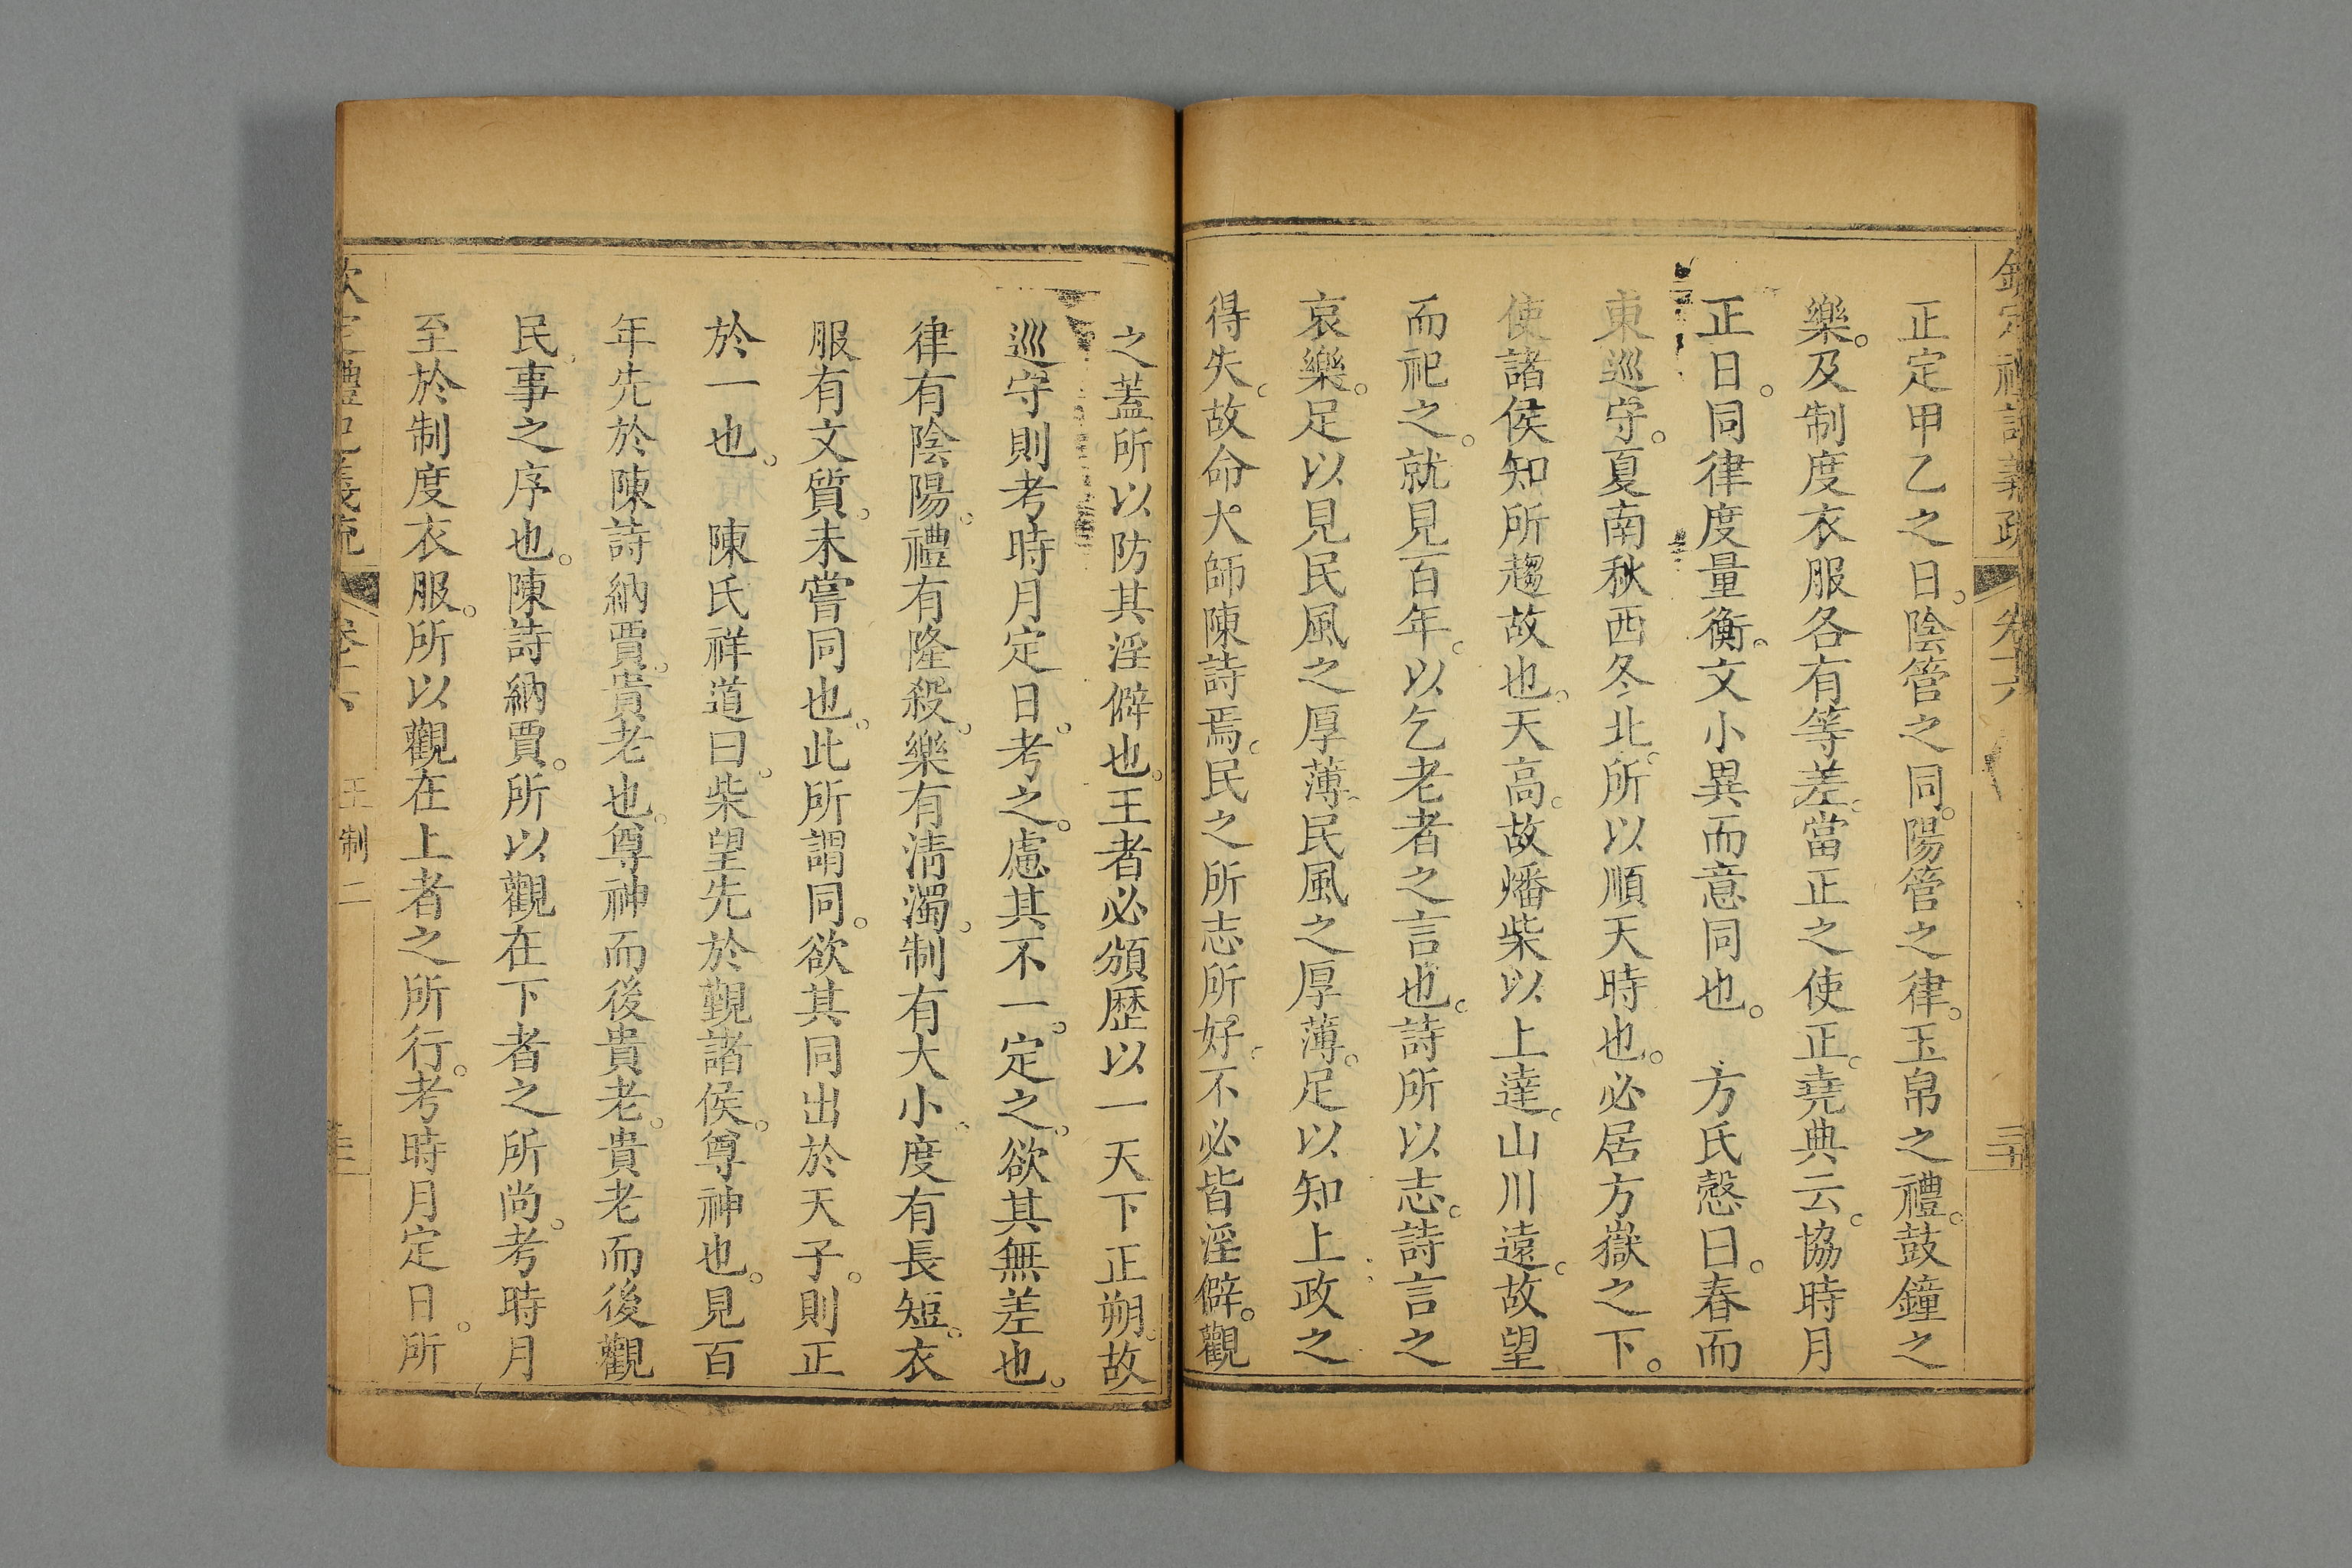 正定甲乙之日。陰管之同。陽管之律。玉帛之禮。鼓鐘之
樂。及制度衣服各有等差。當正之使正。堯典云。協時月
正日。同律度量衡。文小異而意同也。 方氏慤曰。春而
東巡守。夏南秋西冬北。所以順天時也。必居方嶽之下。
使諸侯知所趨故也。天高。故燔柴以上達。山川遠。故望
而祀之。就見百年。以乞老者之言也。詩所以志。詩言之
哀樂。足以見民風之厚薄。民風之厚薄。足以知上政之
得失。故命大師陳詩焉。民之所志所好。不必皆淫僻。觀
之蓋所以防其淫僻也。王者必頒歷以一天下正朔。故
巡守則考時月定日。考之。慮其不一。定之。欲其無差也。
律有陰陽。禮有隆殺。樂有淸濁。制有大小。度有長短。衣
服有文質。未嘗同也。此所謂同。欲其同出於天子。則正
於一也。 陳氏祥道曰。柴望先於覲諸侯。尊神也。見百
年先於陳詩納賈。貴老也。尊神而後貴老。貴老而後觀
民事之序也。陳詩納賈。所以觀在下者之所尚。考時月
至於制度衣服。所以觀在上者之所行。考時月定日。所
王制二